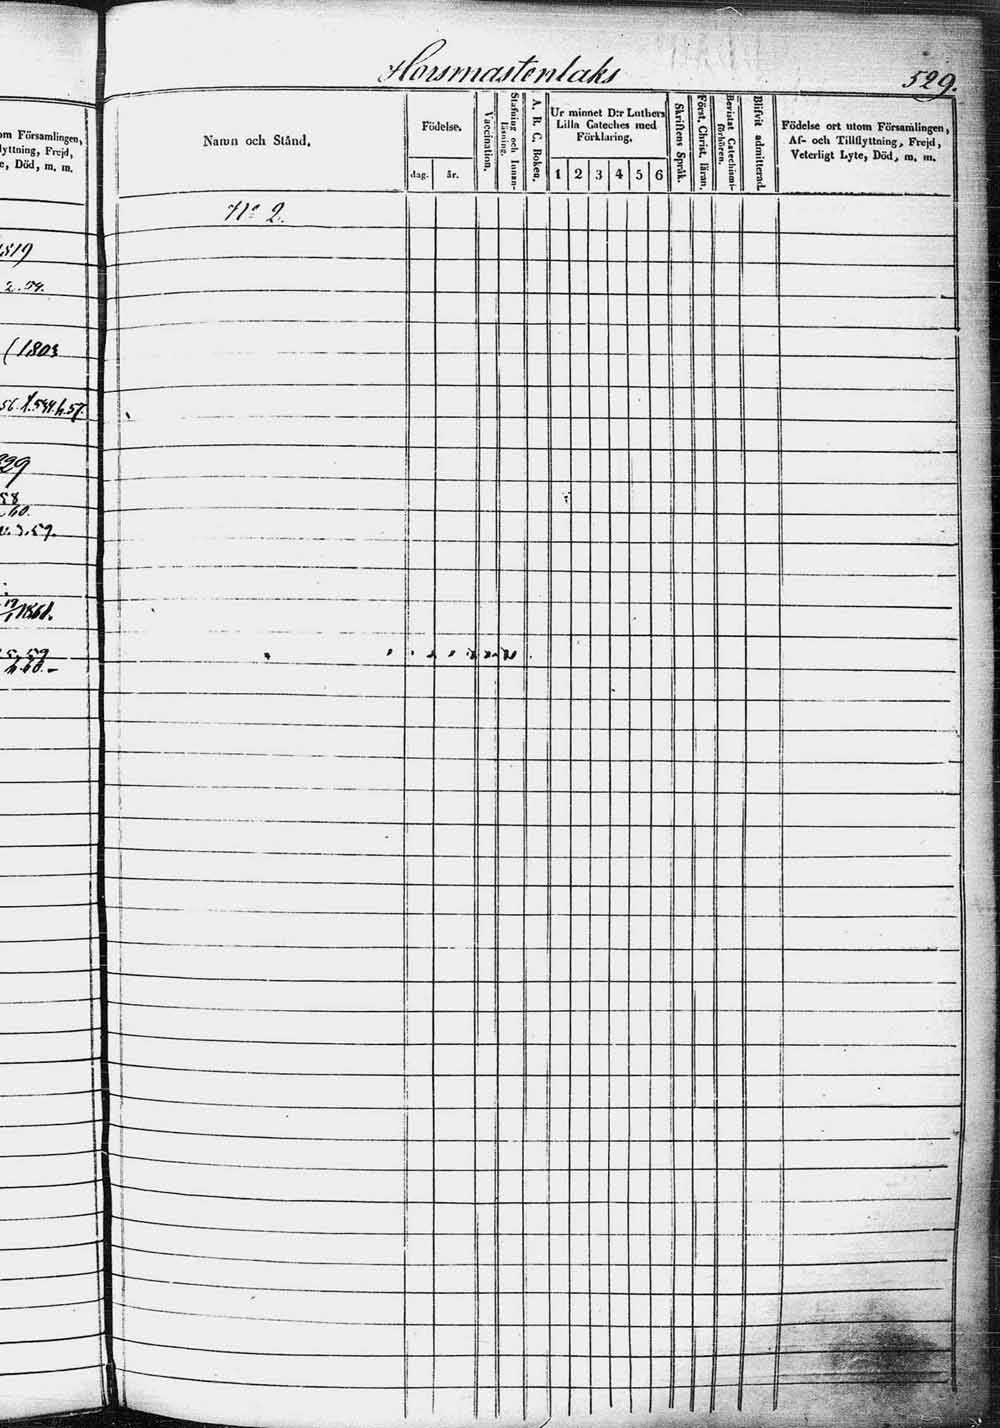 Horsmastenlaks
529.
om Församlingen,
lyttning, Frejd,
e, Död, m. m.
1819
2.59.
(1803
56. f.544.h.57.
829
58
60.
3.59.
1861.
5.59
h.60.-
Namn och Stånd.
Födelse.
dag.
år.
Vaccination.
Stafning och Innan-
läsning.
A. B. C. Boken.
Ur minnet D:r Luthers
Lilla Cateches med
Förklaring.
1 2 3 4 5 6
Skriftens Språk.
Först. Christ. läran.
Bevistat Catechismi-
förhören.
Blifvit admitterad.
Födelse ort utom Församlingen,
Af- och Tillflyttning, Frejd,
Veterligt Lyte, Död, m. m.
No 2.